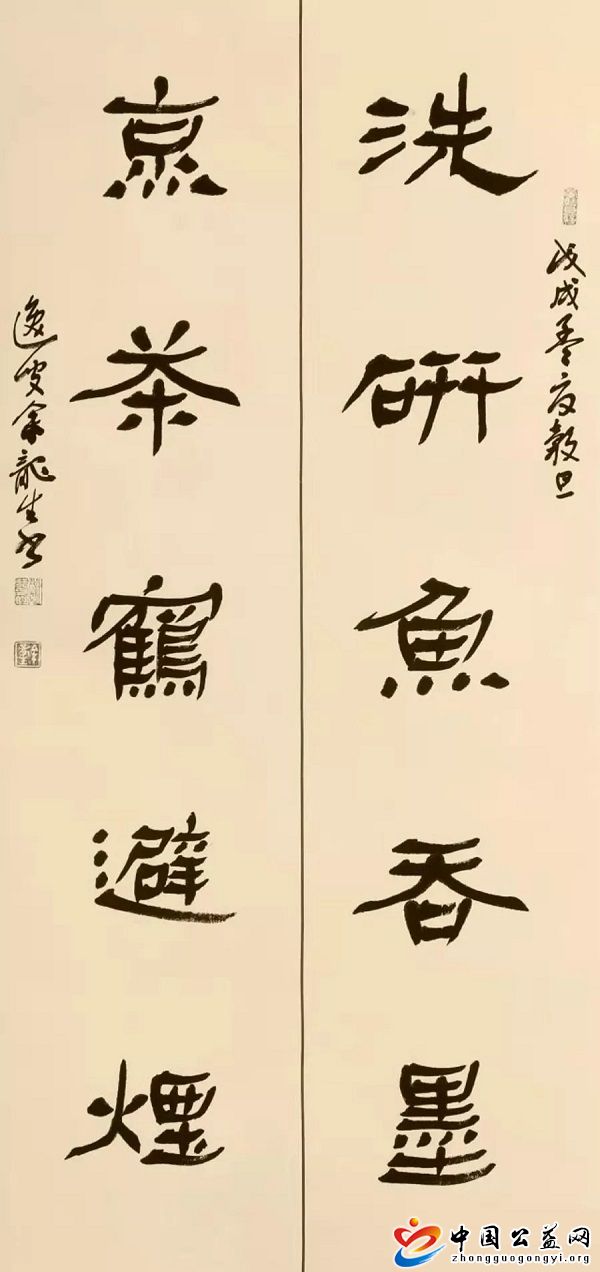 戊戌夏穀旦
洗研魚吞墨
烹茶鶴避煙
逸叟余龍生书
中国公益网
zhongguogongyi.org